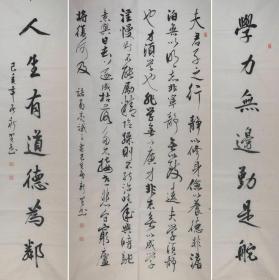 學力無邊勤是舵
夫君子之行靜以修身儉以養德非淡
泊無以明志非寧靜無以致遠夫學須靜
也才須學也非學無以廣才非志無以成學
淫慢則不能勵精險躁則不能治性年與時馳
意與日去遂成枯落多不接世悲守窮廬
將復何及
諸葛亮誡子書
人生有道德為鄰